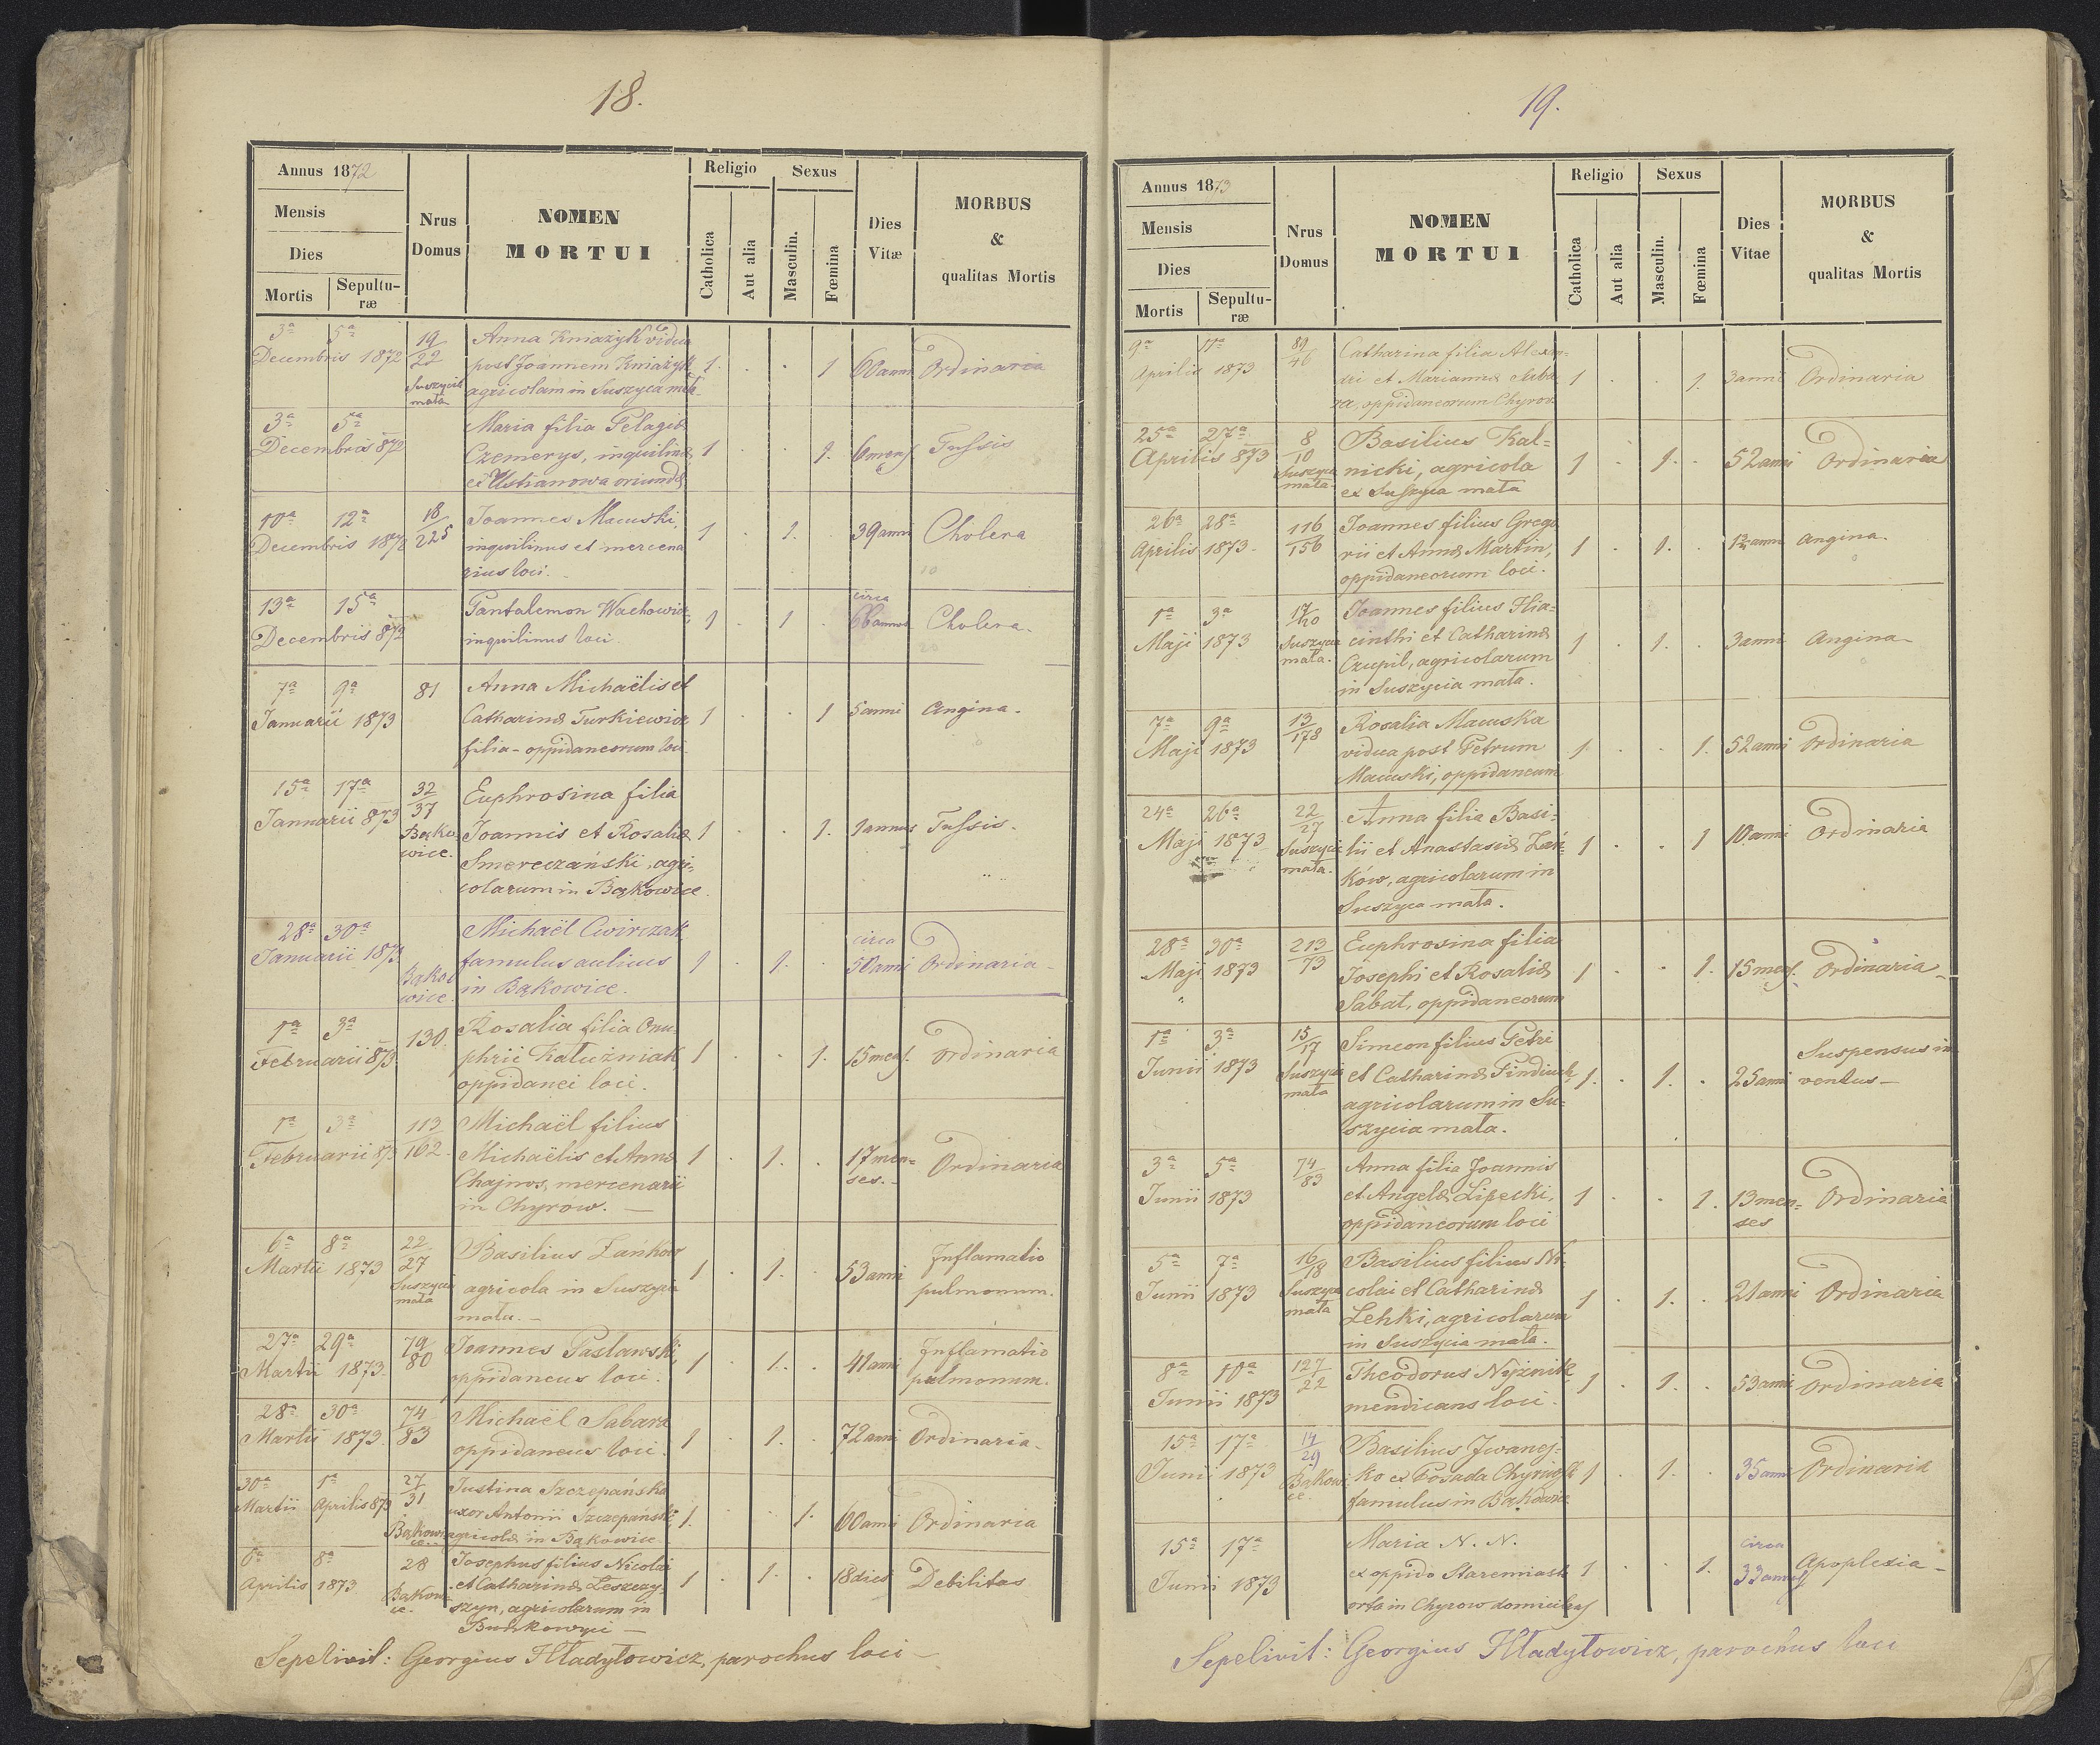 18.
Annus 1872
Mensis
Dies
Mortis
Sepultu-
ræ
Nrus
Domus
NOMEN
MORTUI
Religio
Catholica
Aut alia
Sexus
Masculin.
Fœmina
Dies
Vitæ
MORBUS
&
qualitas Mortis
3ª 5ª 19/22 Anna Kniażyk vidua
Decembris 1872 post Joannem Kniażyk 1. . . 1 60 anni Ordinaria
Suszycia mała agricolam in Suszyca mała
3ª 5ª Maria filia Pelagiæ
Decembris 872 Czemerys, inquilinæ 1 . . 1. 6 mens Tussis
ex Ustianowa oriundæ
10ª 12ª 18/225 Joannes Macuski,
Decembris 1872 inquilinus et mercena 1 . 1. 39 anni Cholera
rius loci.
13ª 15ª Pantalemon Wachowicz, circa
Decembris 872 inquilinus loci. 1 . 1 . 66 annos Cholera.
7ª 9ª 81 Anna Michaëlis et
Januarii 1873 Catharinæ Turkiewicz 1 . . 1 5 anni Angina.
filia - oppidaneorum loci.
15ª 17ª 32/37 Euphrosina filia
Januarii 873 Bąkowice. Joannis et Rosaliæ 1 . . 1. 1 annus Tussis.
Smereczański, agri-
colarum in Bąkowice.
28ª 30ª Michaël Cwirczak circa
Januarii 1873 famulus aulicus 1 . 1. . 50 anni Ordinaria -
Bąkowice. in Bąkowice.
1ª 3ª 130. Rosalia filia Onu-
Februarii 873. phrii Kałużniak, 1 . . 1. 15 mens. Ordinaria
oppidanei loci.
1ª 3ª 113/162 Michaël filius
Februarii 873 Michaëlis et Annæ 1 . 1. . 17 men= Ordinaria
Chajnos, mercenarii ses. -
in Chyrow. —
6ª 8ª 22/27 Basilius Łańkow Inflamatio
Martii 1873 Suszycia mała agricola in Suszycia 1 . 1. . 53 anni pulmonum.
mała. -
27ª 29ª 79/80 Joannes Pasławski, Inflamatio
Martii 1873. oppidaneus loci. 1 . 1. . 41 anni pulmonum.
28ª 30ª 74/83 Michaël Sabara
Martii 1873. oppidaneus loci. 1 . 1. . 72 anni Ordinaria.
30ª 1ª 27/31 Justina Szczepańska
Martii Aprilis 873 uxor Antonii Szczepański, 1. . . 1. 60 anni Ordinaria
Bąkowice. agricolæ in Bąkowice
6ª 8ª 28 Josephus filius Nicolai
Aprilis 1873 Bąkowice. et Catharinæ Leszczy- 1 . 1. . 18 dies Debilitas
szyn, agricolarum in
Bąkowyci —
Sepelivit: Georgius Hładyłowicz, parochus loci —
19.
Annus 1873
Mensis
Dies
Mortis
Sepultu-
ræ
Nrus
Domus
NOMEN
MORTUI
Religio
Catholica
Aut alia
Sexus
Masculin.
Fœmina
Dies
Vitae
MORBUS
&
qualitas Mortis
9ª 11ª 89/46 Catharina filia Alexan-
Aprilis 1873 dri et Mariannæ Saba- 1 . . 1. 3 anni Ordinaria
ra, oppidaneorum Chyrov.
25ª 27ª 8/10 Basilius Kal=
Aprilis 873 Suszyca mała. nicki, agricola 1 . 1. . 52 anni Ordinaria
ex Suszyca mała
26ª 28ª 116/156 Joannes filius Grego
Aprilis 1873. rii et Annæ Martin, 1 . 1. . anni Angina.
oppidaneorum loci.
1ª 3ª 17/20 Joannes filius Hia-
Maji 1873 Suszycia mała. cinthi et Catharinæ 1 . 1. . 3 anni Angina -
Czupil, agricolarum
in Suszycia mała.
7ª 9ª 13/178 Rosalia Macuska
Maji 1873 vidua post Petrum 1 . . 1. 52 anni Ordinaria
Macuski, oppidaneum
24ª 26ª 22/27 Anna filia Basi-
Maji 1873 Suszycia mała. lii et Anastasiæ Łań- 1 . . 1 10 anni Ordinaria
ków, agricolarum in
Suszyca mała.
28ª 30ª 213/73 Euphrosina filia
Maji 1873 Josephi et Rosaliæ 1 . . 1. 15 mens. Ordinaria -
Sabat, oppidaneorum
1ª 3ª 15/17 Simeon filius Petri Suspensus in
Junii 1873 Suszycia mała et Catharinæ Findiuch, 1. . 1. . 25 anni ventus —
agricolarum in Su-
szycia mała.
3ª 5ª 74/83 Anna filia Joannis
Junii 1873 et Angelæ Lipecki, 1 . . 1. 13 men= Ordinaria
oppidaneorum loci ses
5ª 7ª 16/18 Basilius filius Ni-
Junii 1873 Suszyca mała colai et Catharinæ 1 . 1. . 21 anni Ordinaria
Lehki, agricolarum
in Suszycia mała.
8ª 10ª 127/22 Theodorus Nyżnik
Junii 1873 mendicans loci. 1 . 1. . 53 anni Ordinaria
15ª 17ª 14/29 Basilius Iwanej-
Junii 1873 Bąkowice. ko ex Posada Chyrivsk 1 . 1. . 35 anni Ordinaria
famulus in Bąkowice
15ª 17ª Maria N. N. circa
Junii 1873 ex oppido Staremiasto 1 . . 1. 33 annos Apoplexia -
orta in Chyrow domicilians
Sepelivit: Georgius Hładyłowicz, parochus loci